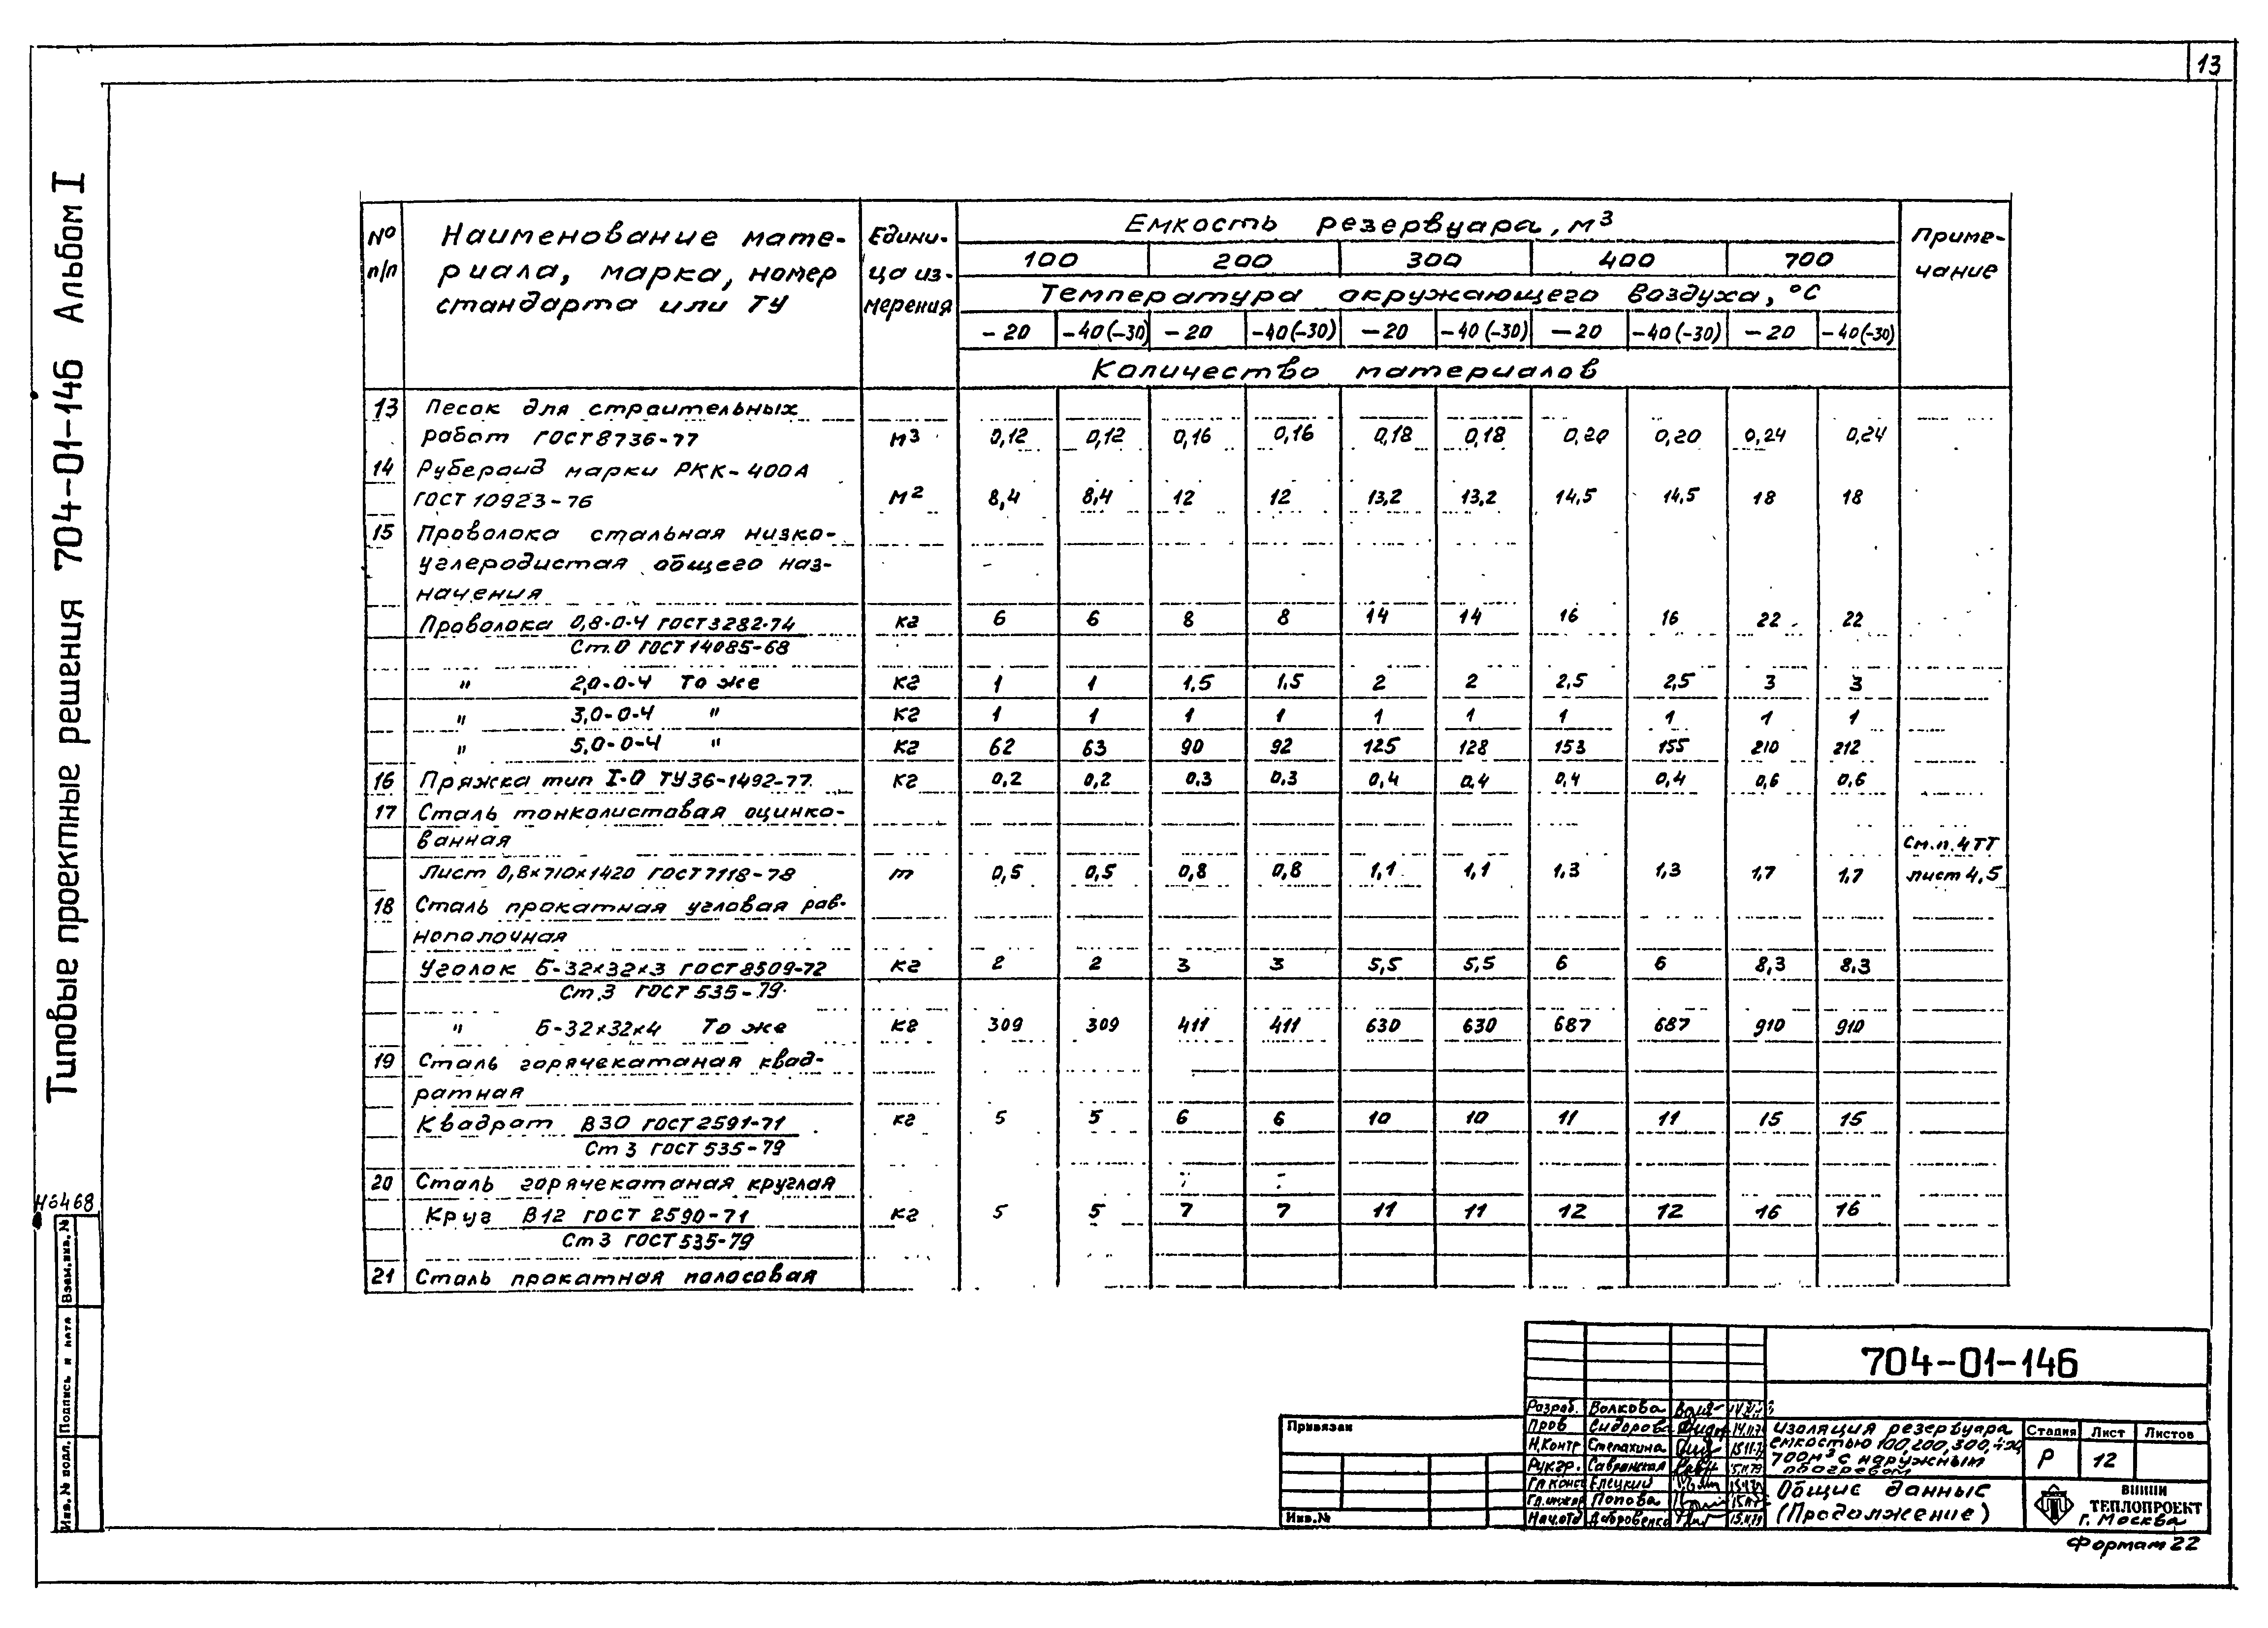 13
Типовые проектные решения 704-01-146 Альбом I
№ п/п
Наименование мате-
риала, марка, номер
стандарта или ТУ
Едини-
ца из-
мерения
Емкость резервуара, м³
Приме-
чание
100 200 300 400 700
Температура окружающего воздуха, °С
-20 -40(-30) -20 -40(-30) -20 -40(-30) -20 -40(-30) -20 -40(-30)
Количество материалов
13 Песок для строительных
работ ГОСТ 8736-77 м³ 0,12 0,12 0,16 0,16 0,18 0,18 0,20 0,20 0,24 0,24
14 Рубероид марки РКК-400А
ГОСТ 10923-76 м² 8,4 8,4 12 12 13,2 13,2 14,5 14,5 18 18
15 Проволока стальная низко-
углеродистая общего наз-
начения
Проволока 0,8-0-Ч ГОСТ 3282-74 кг 6 6 8 8 14 14 16 16 22 22
Ст.0 ГОСТ 14085-68
" 2,0-0-Ч То же кг 1 1 1,5 1,5 2 2 2,5 2,5 3 3
" 3,0-0-Ч " кг 1 1 1 1 1 1 1 1 1 1
" 5,0-0-Ч " кг 62 63 90 92 125 128 153 155 210 212
16 Пряжка тип I-О ТУ36-1492-77 кг 0,2 0,2 0,3 0,3 0,4 0,4 0,4 0,4 0,6 0,6
17 Сталь тонколистовая оцинко-
ванная См.п.4ТТ
Лист 0,8×710×1420 ГОСТ 7118-78 т 0,5 0,5 0,8 0,8 1,1 1,1 1,3 1,3 1,7 1,7 лист 4,5
18 Сталь прокатная угловая рав-
нополочная
Уголок Б-32×32×3 ГОСТ 8509-72 кг 2 2 3 3 5,5 5,5 6 6 8,3 8,3
Ст.3 ГОСТ 535-79
" Б-32×32×4 То же кг 309 309 411 411 630 630 687 687 910 910
19 Сталь горячекатаная квад-
ратная
Квадрат В30 ГОСТ 2591-71 кг 5 5 6 6 10 10 11 11 15 15
Ст 3 ГОСТ 535-79
20 Сталь горячекатаная круглая
Круг В12 ГОСТ 2590-71 кг 5 5 7 7 11 11 12 12 16 16
Ст 3 ГОСТ 535-79
21 Сталь прокатная полосовая
Взам.инв.№
Подпись и дата
Инв.№ подл.
704-01-146
Привязан
Инв.№
Разраб. Волкова
Пров Сидорова
Н.Контр Степахина
Рук.гр. Савранская
Гл.конс Елецкий
Гл.инжпр Попова
Нач.отд
Изоляция резервуара
емкостью 100,200,300,400,
700м³ с наружным
обогревом
Стадия Лист Листов
Р 12
Общие данные
(Продолжение)
ВНИПИ
ТЕПЛОПРОЕКТ
г. Москва
Формат 22